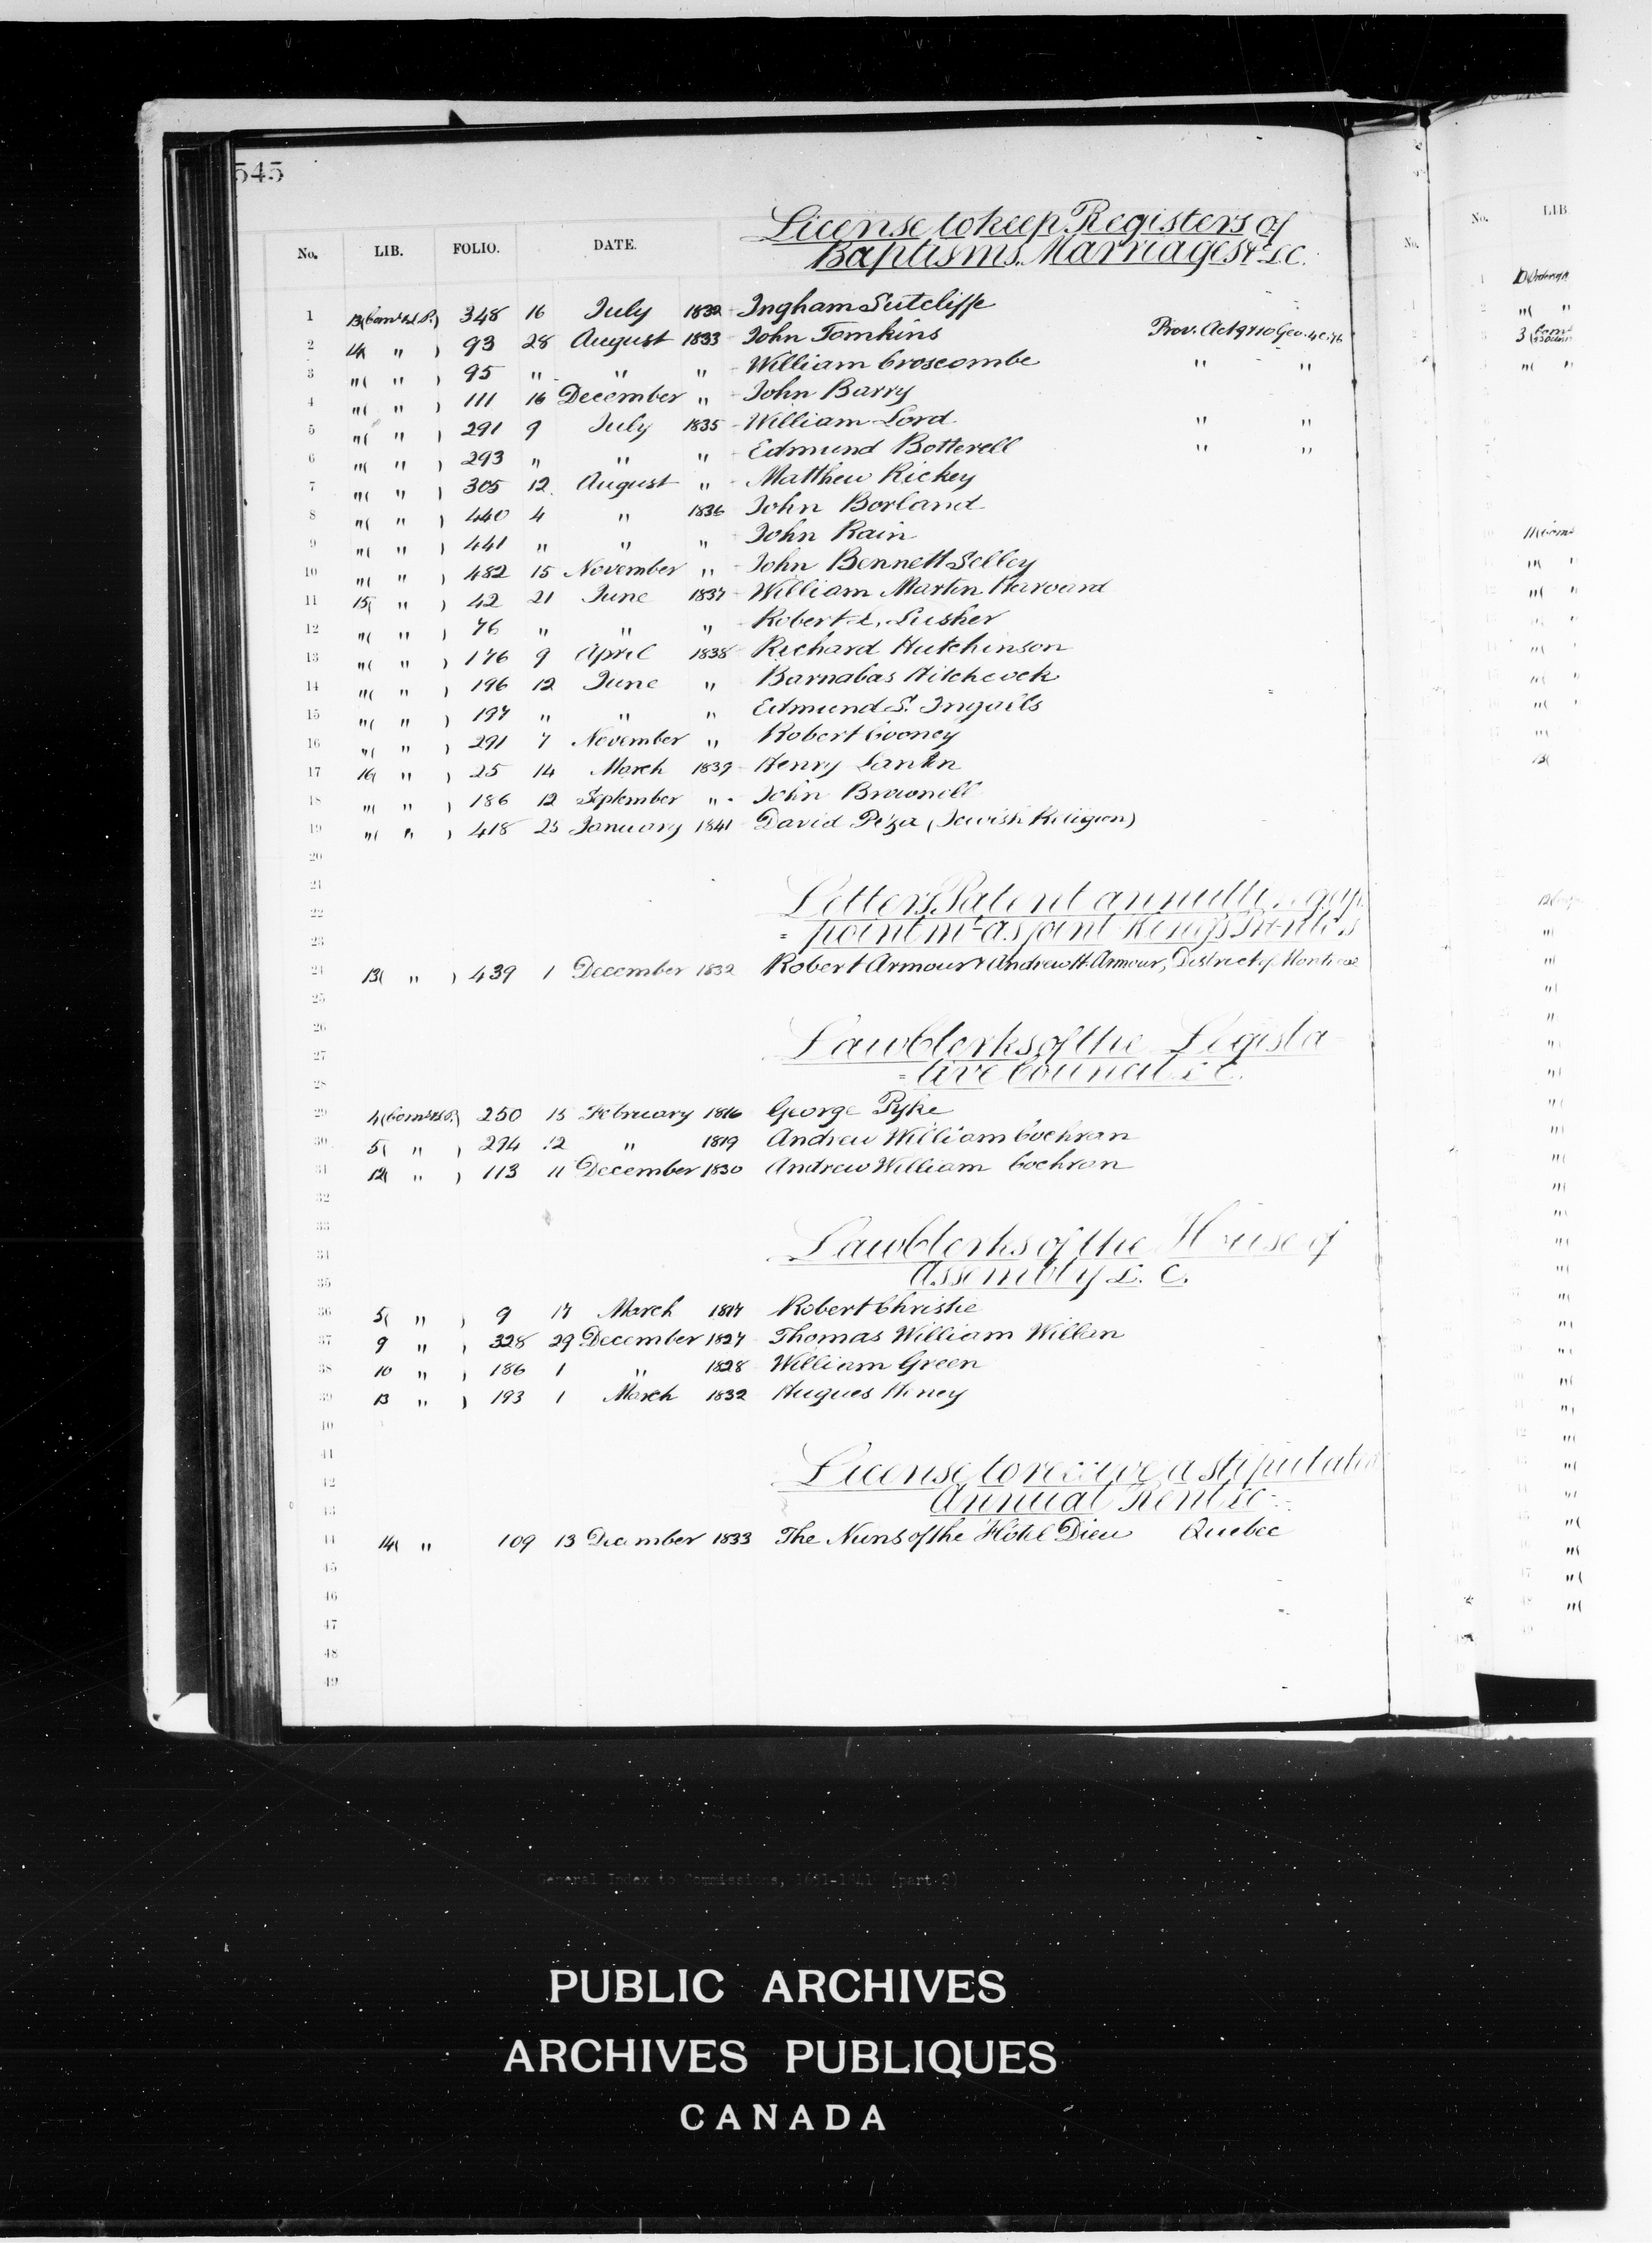 545
No. LIB. FOLIO. DATE.
License to keep Registers of
Baptisms, Marriages &c L.C.
1 13( ) 348 16 July 1832 Ingham Sutcliffe
2 14( " ) 93 28 August 1833 John Tomkins Prov. Act 9 & 10 Geo. 4 C. 76
3 "( " ) 95 " " " William Croscombe " "
4 "( " ) 111 16 December " John Barry
5 "( " ) 291 9 July 1835 William Lord " "
6 "( " ) 293 " " " Edmund Botterell " "
7 "( " ) 305 12 August " Matthew Richey
8 "( " ) 440 4 " 1836 John Borland
9 "( " ) 441 " " " John Rain
10 "( " ) 482 15 November " John Bennett Selley
11 15( " ) 42 21 June 1837 William Martin Harvard
12 "( " ) 76 " " " Robert L. Lusher
13 "( " ) 176 9 April 1838 Richard Hutchinson
14 "( " ) 196 12 June " Barnabas Hitchcock
15 "( " ) 197 " " " Edmund S. Ingalls
16 "( " ) 291 7 November " Robert Cooney
17 16( " ) 25 14 March 1839 Henry Lanton
18 "( " ) 186 12 September " John Brownell
19 "( " ) 418 25 January 1841 David Piza (Jewish Religion)
20
21
22 Letters Patent annulling ap
23 = pointmt as joint King's Printers
24 13( " ) 439 1 December 1832 Robert Armour & Andrew H. Armour, District of Montreal
25
26
27 Law Clerks of the Legisla
28 = tive Council L.C.
29 4( ) 250 15 February 1816 George Pyke
30 5( " ) 274 12 " 1819 Andrew William Cochran
31 12( " ) 113 11 December 1830 Andrew William Cochran
32
33
34 Law Clerks of the House of
35 Assembly L.C.
36 5( " ) 9 17 March 1817 Robert Christie
37 9 " ) 328 29 December 1827 Thomas William Willan
38 10 " ) 186 1 " 1828 William Green
39 13 " ) 193 1 March 1832 Hugues Heney
40
41
42 License to receive a stipulated
43 Annual Rent &c
44 14( " 109 13 December 1833 The Nuns of the Hôtel Dieu Quebec
45
46
47
48
49
General Index to Commissions, 1651-1841 (part 2)
PUBLIC ARCHIVES
ARCHIVES PUBLIQUES
CANADA